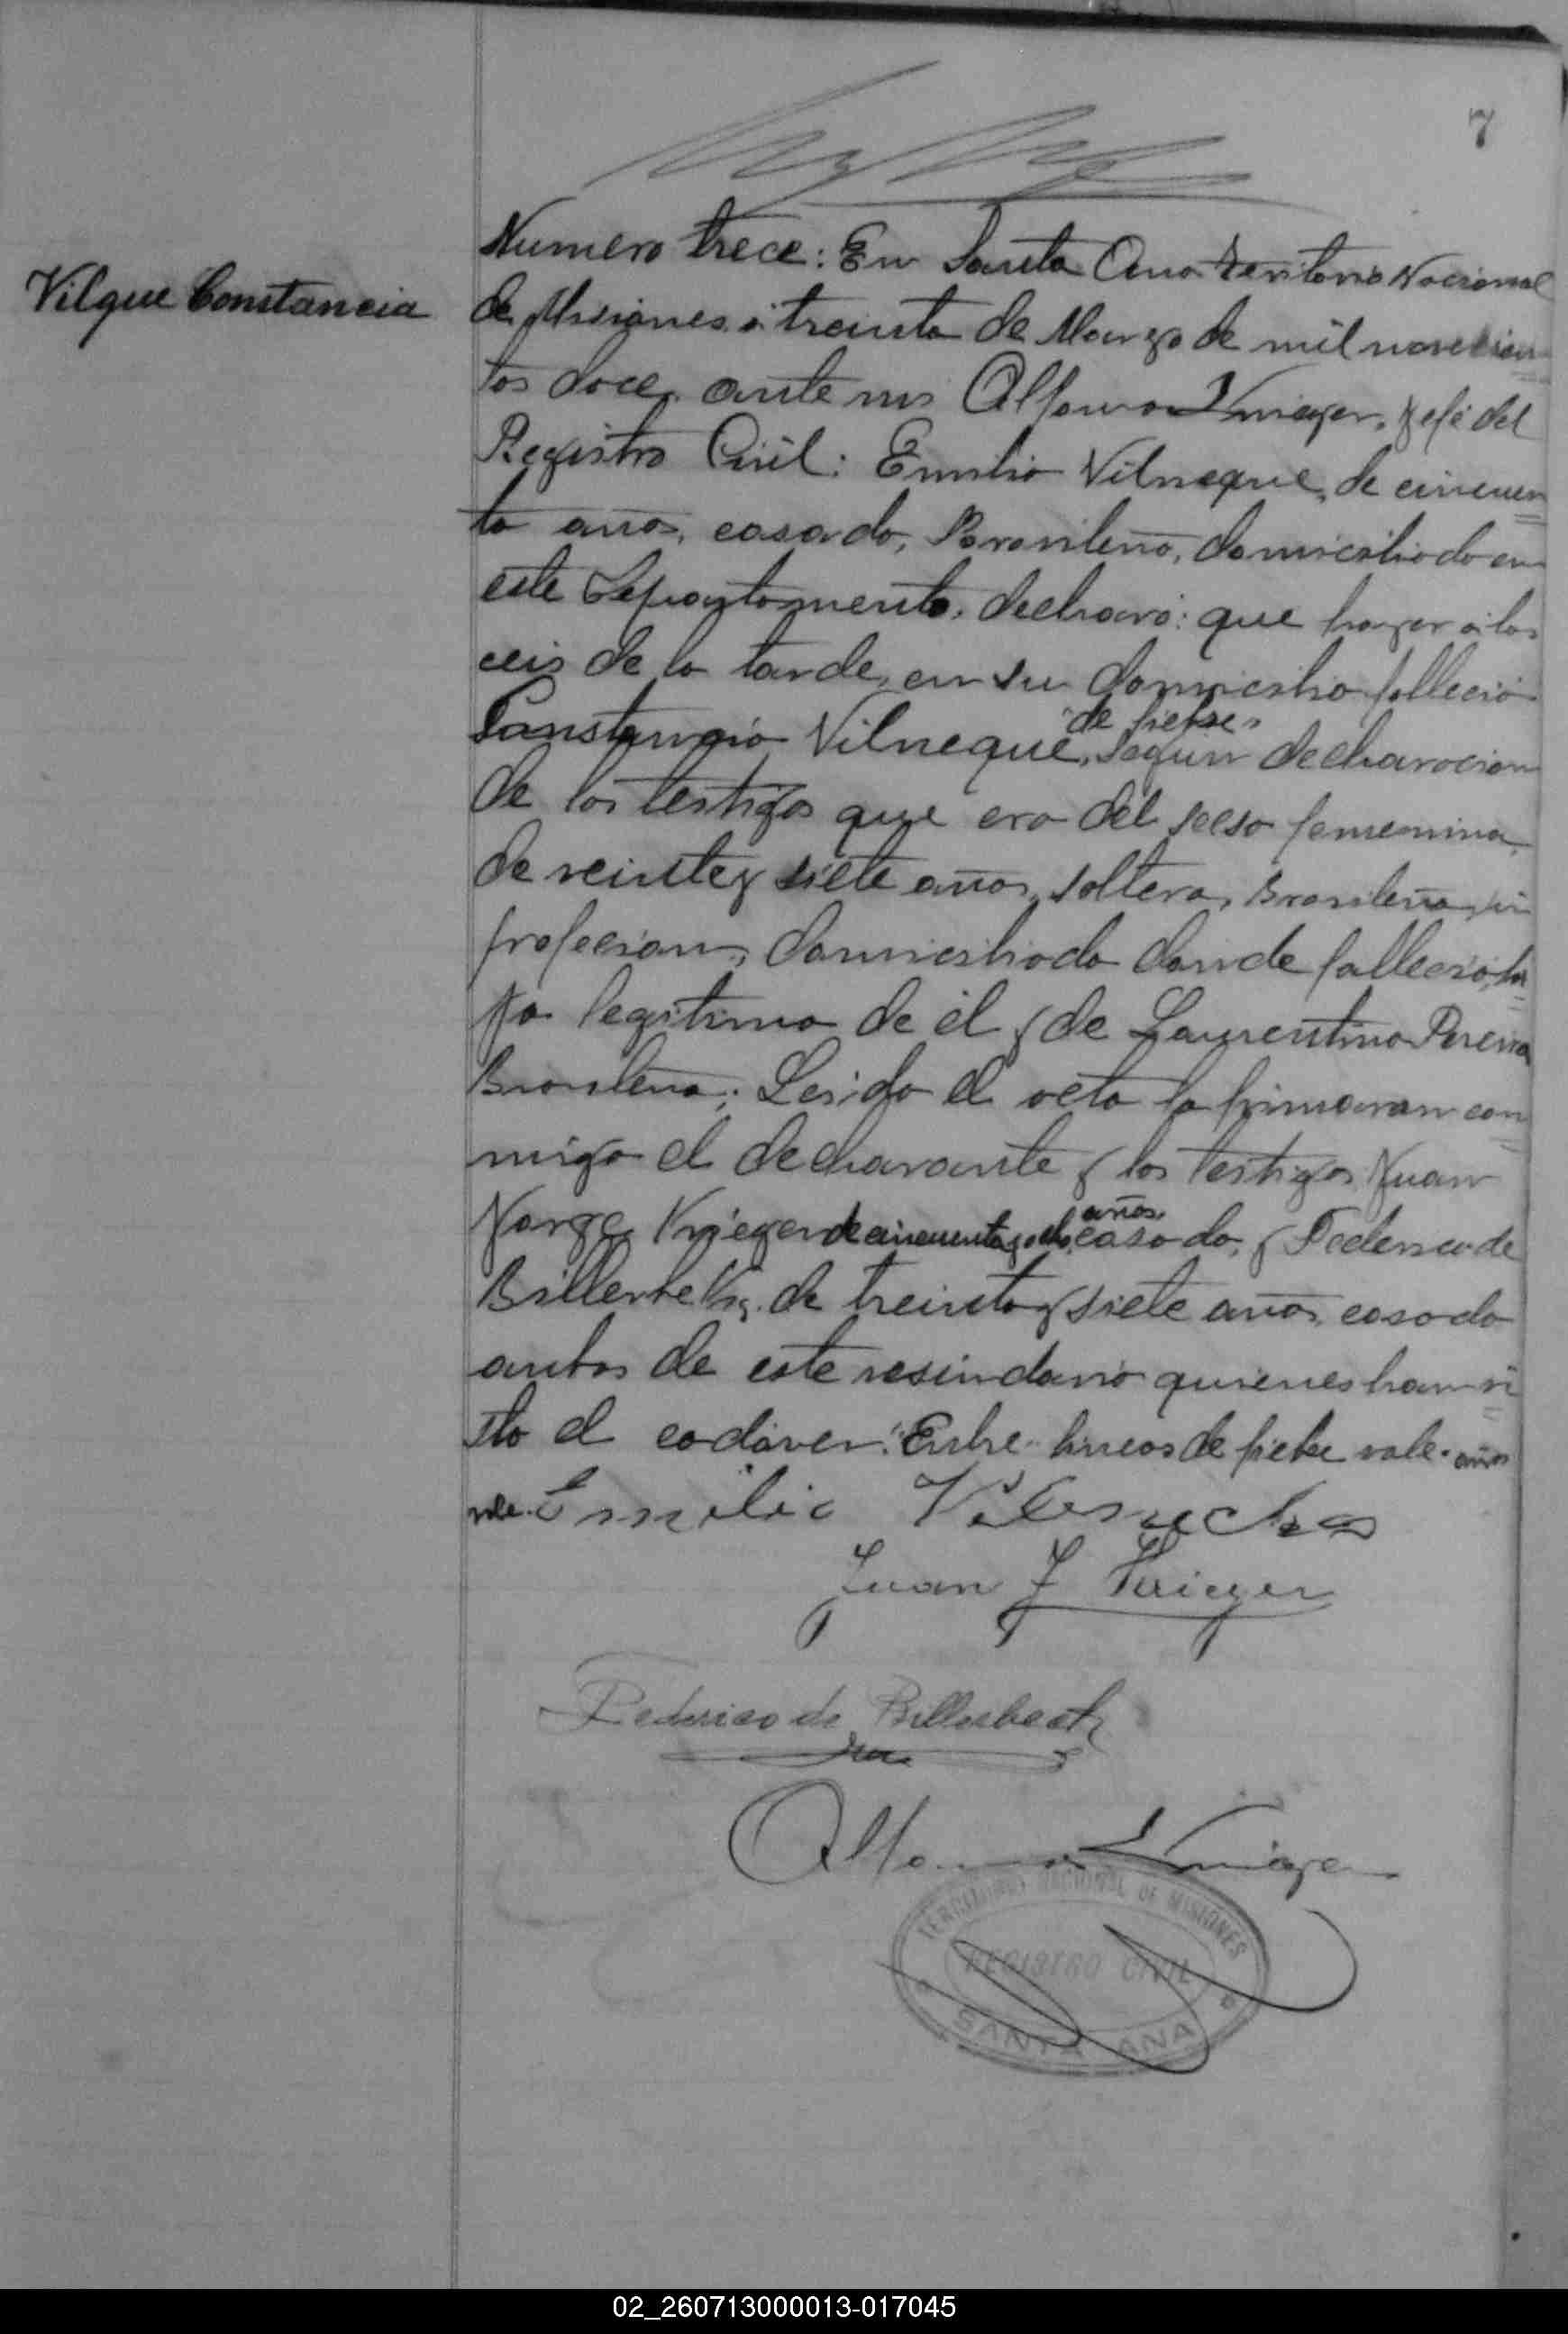 7
Vilque Constancia
Numero trece: En Santa Ana Territorio Nacional
de Misiones á treinta de Marzo de mil novecien
tos doce, ante mi Alfonso Krieger, Jefe del
Registro Civil: Emilio Vilneque, de cincuen
ta años, casado, Barasileño, domiciliado en
este Departamento, declaró: que hayer á las
ceis de la tarde, en su domicilio fallecio
Constancia Vilneque, "de fiebre" segun declaracion
de los testigos que era del secso femenino,
de veinte y siete años, soltera, Brasileña, sin
profecion, domiciliada donde fallecio, hi
ja legitima de él y de Laurentina Pereira
Brasileña; Leida el acta la firmaran con
migo el declarante y los testigos Juan
Jorge Krieger de cincuenta y ocho años, casado, y Federico de
Billerbek, de treinta y siete años, casado
anbos de este vesindario quienes han vi
sto el cadáver. "Entre lineas de fiebre vale. años
vale. Emilio
Juan J Krieger
Federico de Billerbeck
Alfonso Krieger
TERRITORIO NACIONAL DE MISIONES
REGISTRO CIVIL
SANTA ANA
02_260713000013-017045